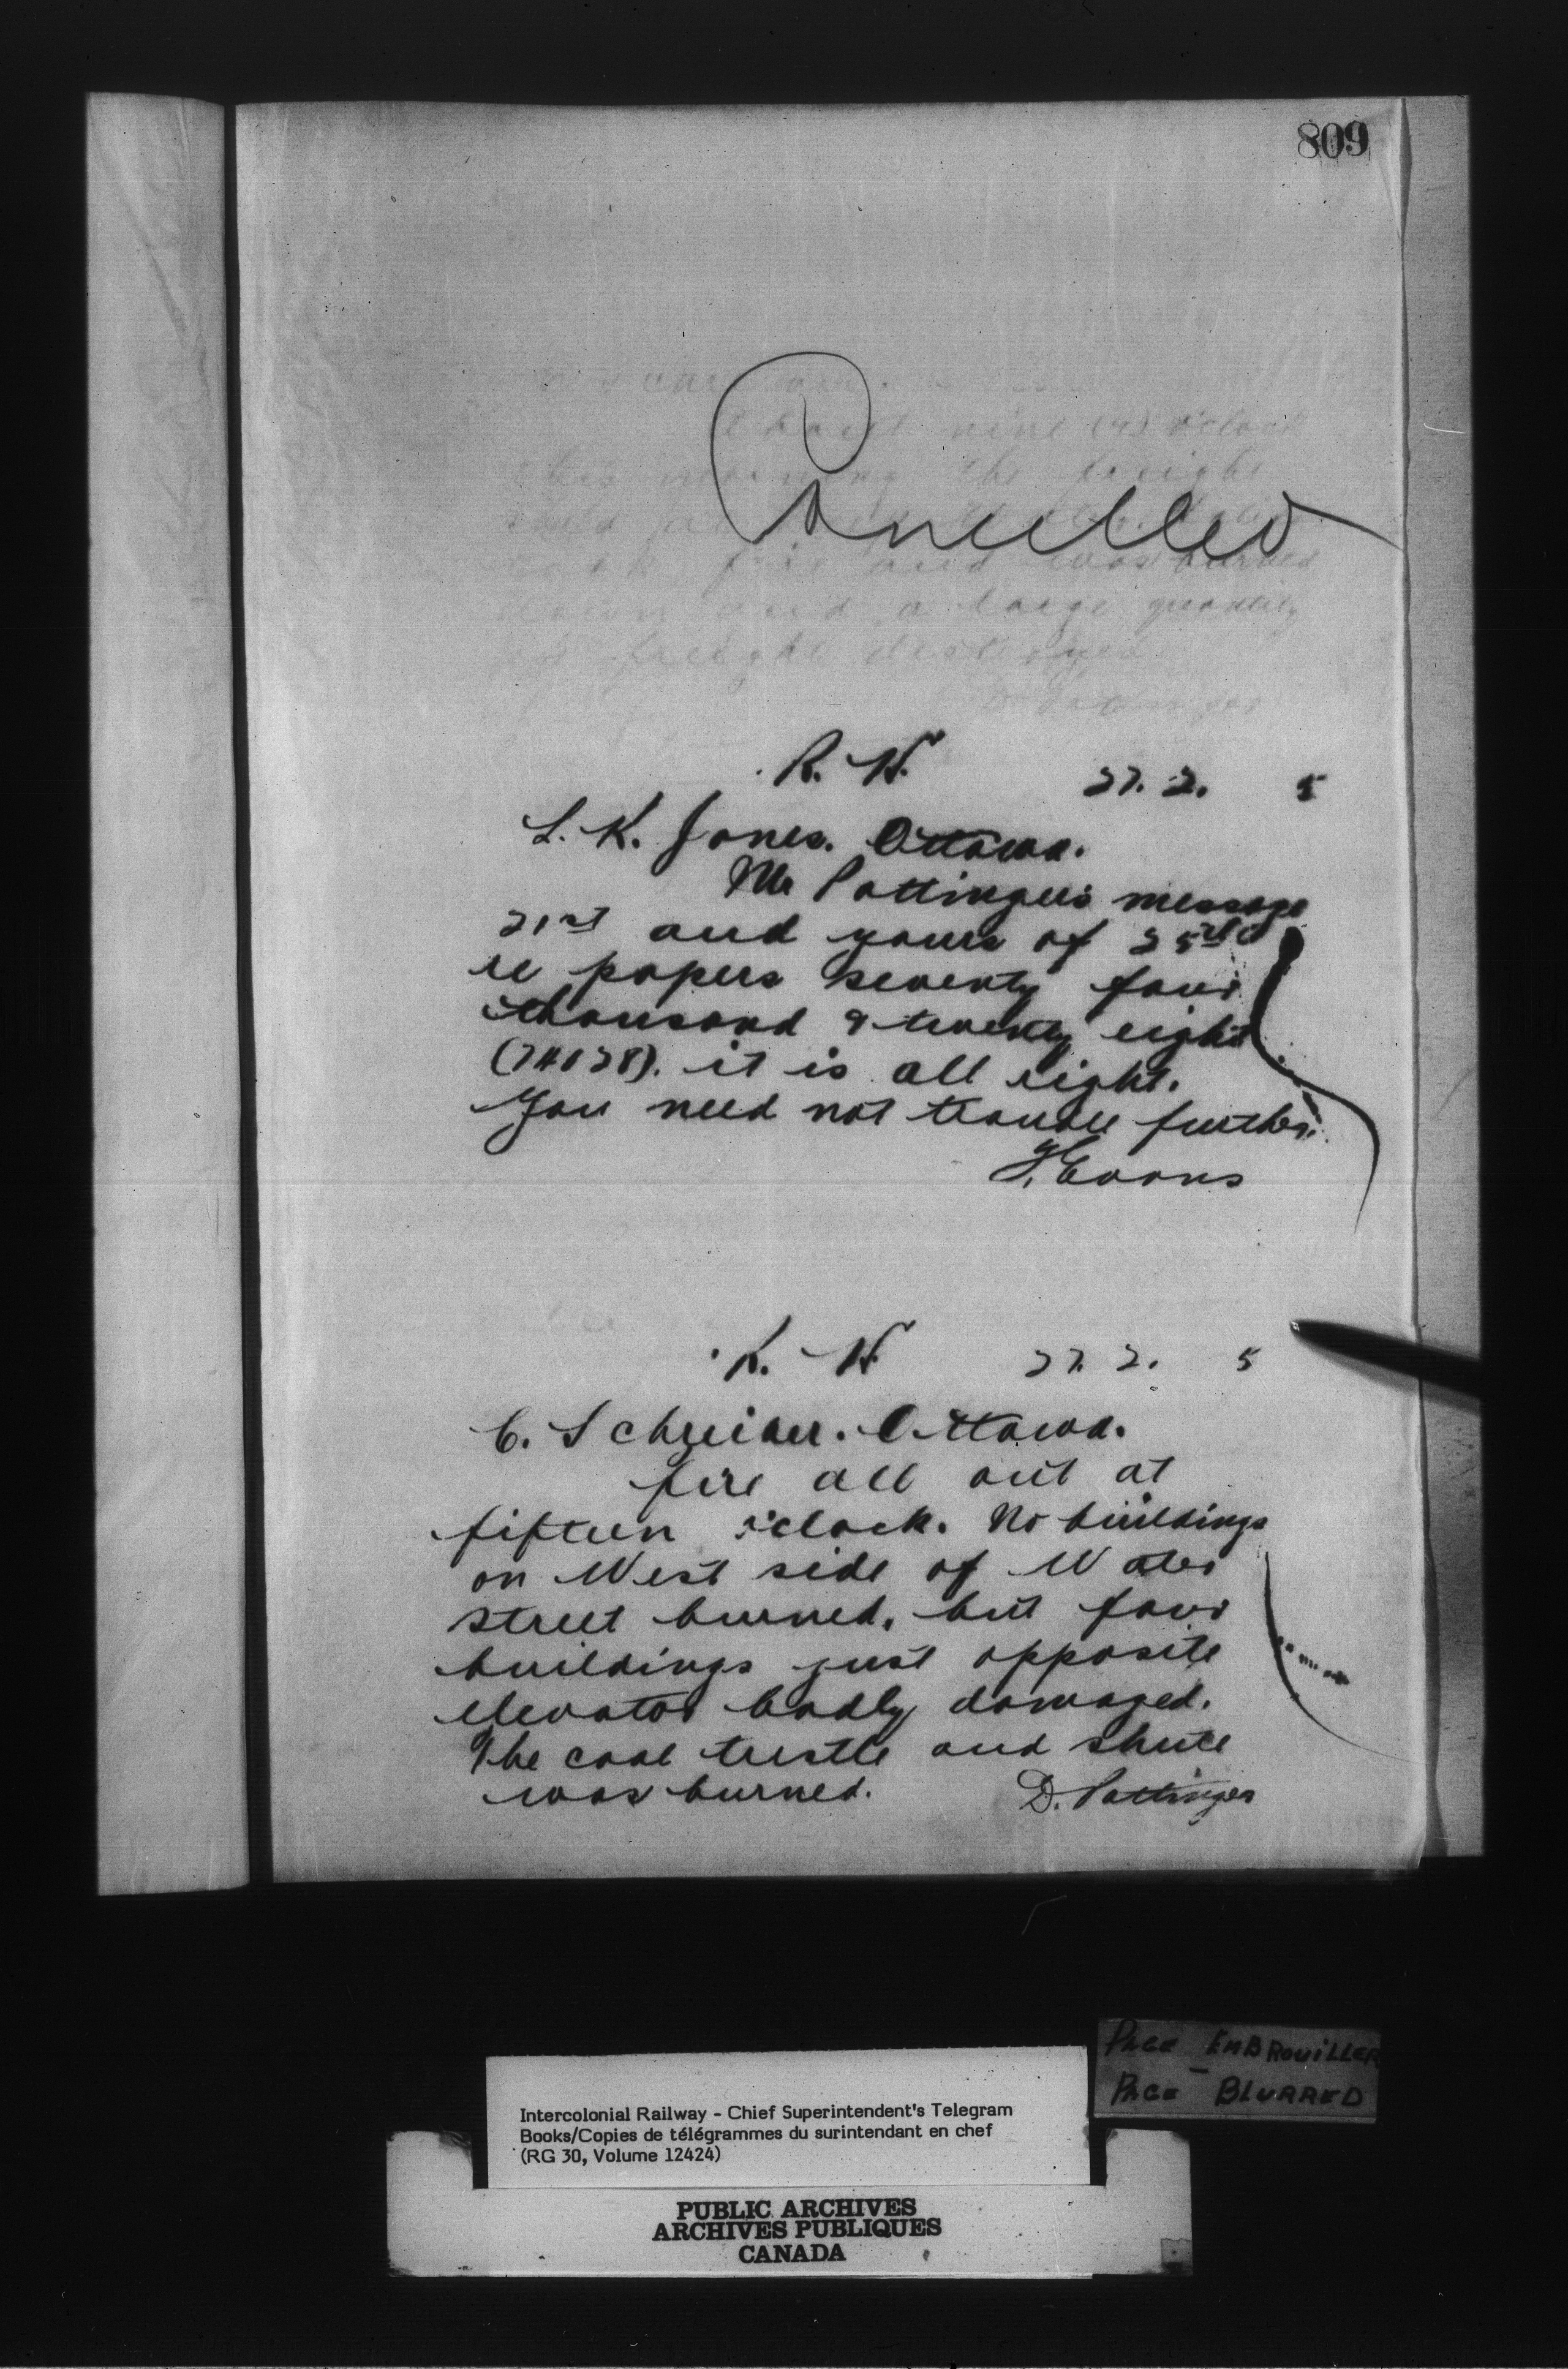 809
Cancelled
nine (9) o'clock
this morning the freight
fire and was burned
down and a large quantity
of freight destroyed
D. Pottinger
R. W. 27. 2. 5
L. K. Jones. Ottawa.
Mr Pottingers message
21st and yours of 25th
re papers seventy four
thousand & twenty eight
(74028). it is all right.
You need not trouble further.
T. Evans
R. W 27. 2. 5
C. Schreiber. Ottawa.
fire all out at
fifteen o'clock. No buildings
on West side of Water
street burned, but four
buildings just opposite
elevator badly damaged.
The coal trestle and shute
was burned. D. Pottinger
PAGE EMBROUILLER
PAGE BLURRED
Intercolonial Railway - Chief Superintendent's Telegram
Books/Copies de télégrammes du surintendant en chef
(RG 30, Volume 12424)
PUBLIC ARCHIVES
ARCHIVES PUBLIQUES
CANADA